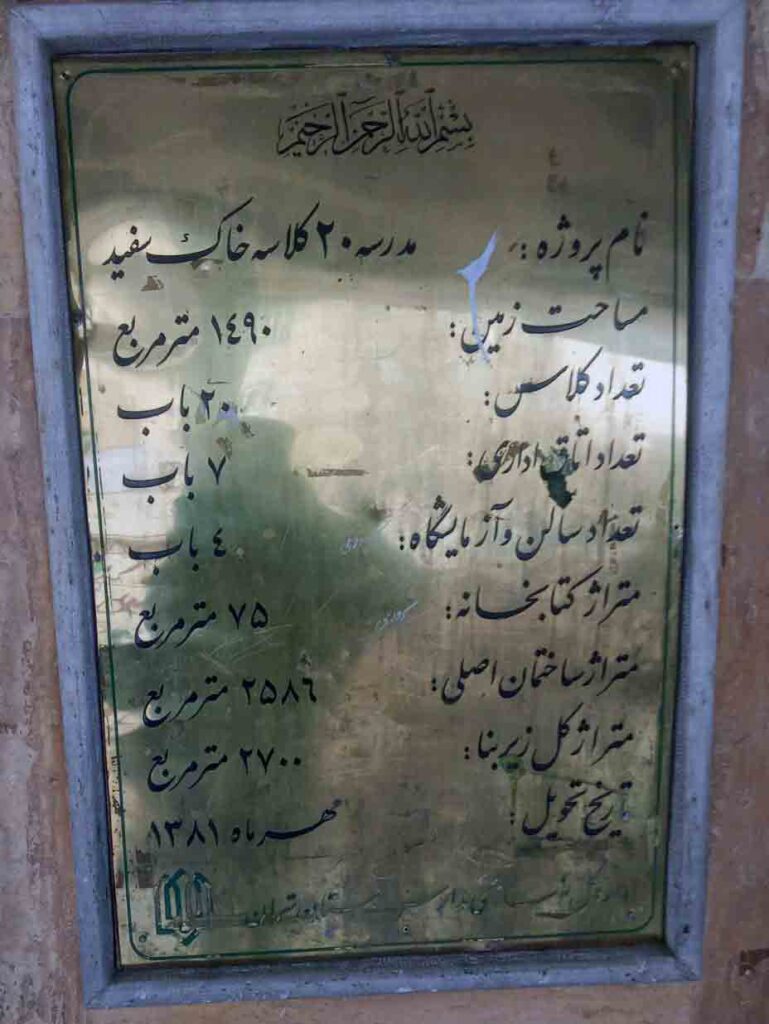 بسم الله الرحمن الرحیم
نام پروژه : مدرسه ۲۰ کلاسه خاک سفید
مساحت زمین : ۱٤۹۰ مترمربع
تعداد کلاس : ۲۰ باب
تعداد اتاق اداری : ۷ باب
تعداد سالن و آزمایشگاه : ٤ باب
متراژ کتابخانه : ۷۵ مترمربع
متراژ ساختمان اصلی : ۲۵۸٦ مترمربع
متراژ کل زیربنا : ۲۷۰۰ مترمربع
تاریخ تحویل : مهر ماه ۱۳۸۱
مدارس استان تهران